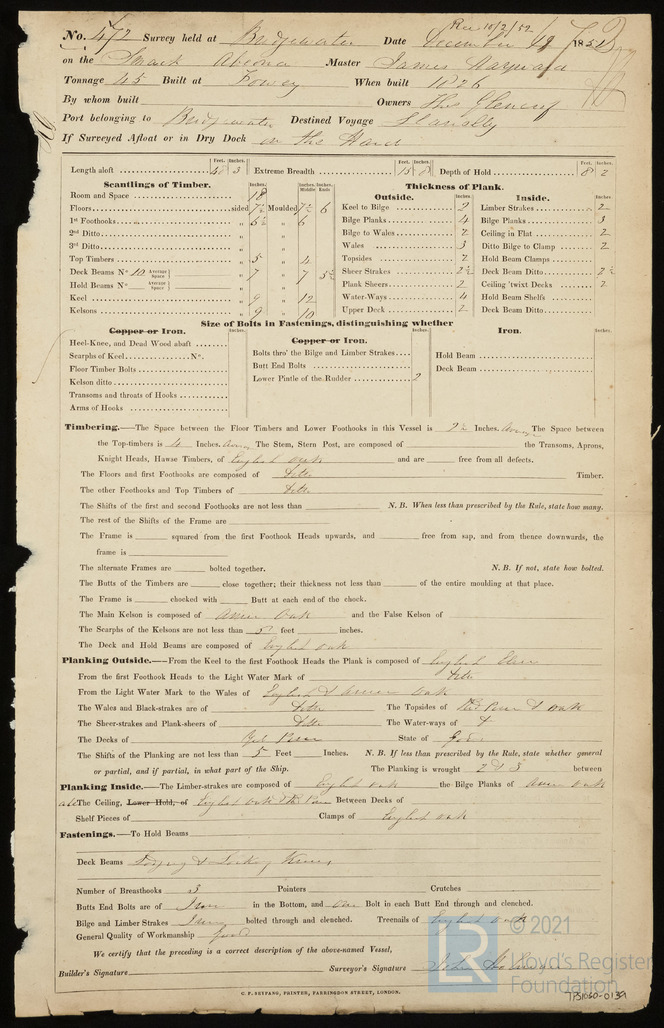 Rec 10/2/52
No. 472 Survey held at Bridgewater Date December 19 1851
on the Smack Master James Hayward
Tonnage 45 Built at Fowey When built 1826
By whom built Owners Thos
Port belonging to Bridgewater Destined Voyage Llanelly
If Surveyed Afloat or in Dry Dock on the Hard
Feet. Inches. Feet. Inches. Feet. Inches.
Length aloft 40 3 Extreme Breadth 15 8 Depth of Hold 8 2
Scantlings of Timber. Inches. Inches. Middle. Inches Ends Thickness of Plank.
Outside. Inches. Inside. Inches.
Room and Space 18 Keel to Bilge 2 Limber Strakes 2
Floors sided 7½ Moulded 7½ 6 Bilge Planks 4 Bilge Planks 3
1st Foothooks „ 6½ „ 6 Bilge to Wales 2 Ceiling in Flat 2
2nd Ditto „ „ Wales 3 Ditto Bilge to Clamp 2
3rd Ditto „ „ Topsides 2 Hold Beam Clamps
Top Timbers „ 5 „ 4 Sheer Strakes 2½ Deck Beam Ditto 2½
Deck Beams No 10 Average Space „ 7 „ 7 5½ Plank Sheers 2 Ceiling 'twixt Decks 2
Hold Beams No Average Space „ „ Water-Ways 4 Hold Beam Shelfs
Keel „ 9 „ 12 Upper Deck 2 Deck Beam Ditto
Kelsons „ 9 „ 10
Size of Bolts in Fastenings, distinguishing whether
Copper or Iron. Inches. Copper or Iron. Inches. Iron. Inches.
Heel-Knee, and Dead Wood abaft Bolts thro' the Bilge and Limber Strakes Hold Beam
Scarphs of Keel No. Butt End Bolts Deck Beam
Floor Timber Bolts Lower Pintle of the Rudder 2
Kelson ditto
Transoms and throats of Hooks
Arms of Hooks
Timbering.—The Space between the Floor Timbers and Lower Foothooks in this Vessel is 2½ Inches. Average The Space between
the Top-timbers is 4 Inches. The Stem, Stern Post, are composed of the Transoms, Aprons,
Knight Heads, Hawse Timbers, of English oak and are free from all defects.
The Floors and first Foothooks are composed of ditto Timber.
The other Foothooks and Top Timbers of ditto
The Shifts of the first and second Foothooks are not less than N. B. When less than prescribed by the Rule, state how many.
The rest of the Shifts of the Frame are
The Frame is squared from the first Foothook Heads upwards, and free from sap, and from thence downwards, the
frame is
The alternate Frames are bolted together. N. B. If not, state how bolted.
The Butts of the Timbers are close together; their thickness not less than of the entire moulding at that place.
The Frame is chocked with Butt at each end of the chock.
The Main Kelson is composed of Amer Oak and the False Kelson of
The Scarphs of the Kelsons are not less than 5 feet inches.
The Deck and Hold Beams are composed of English oak
Planking Outside.—From the Keel to the first Foothook Heads the Plank is composed of English Elm
From the first Foothook Heads to the Light Water Mark of ditto
From the Light Water Mark to the Wales of English & Amer oak
The Wales and Black-strakes are of ditto The Topsides of Red Pine & oak
The Sheer-strakes and Plank-sheers of ditto The Water-ways of
The Decks of Yel Pine State of Good
The Shifts of the Planking are not less than 5 Feet Inches. N. B. If less than prescribed by the Rule, state whether general
or partial, and if partial, in what part of the Ship. The Planking is wrought 2 & 3 between
Planking Inside.—The Limber-strakes are composed of English oak the Bilge Planks of Amer oak
The Ceiling, Lower Hold, of English oak & Red Pine Between Decks of
Shelf Pieces of Clamps of English oak
Fastenings.—To Hold Beams
Deck Beams Lodging & Knees
Number of Breasthooks 3 Pointers Crutches
Butts End Bolts are of Iron in the Bottom, and one Bolt in each Butt End through and clenched.
Bilge and Limber Strakes Iron bolted through and clenched. Treenails of English oak
General Quality of Workmanship Good
We certify that the preceding is a correct description of the above-named Vessel,
Builder's Signature Surveyor's Signature John
C. F. SEYFANG, PRINTER, FARRINGDON STREET, LONDON.
LR © 2021
Lloyd's Register
Foundation